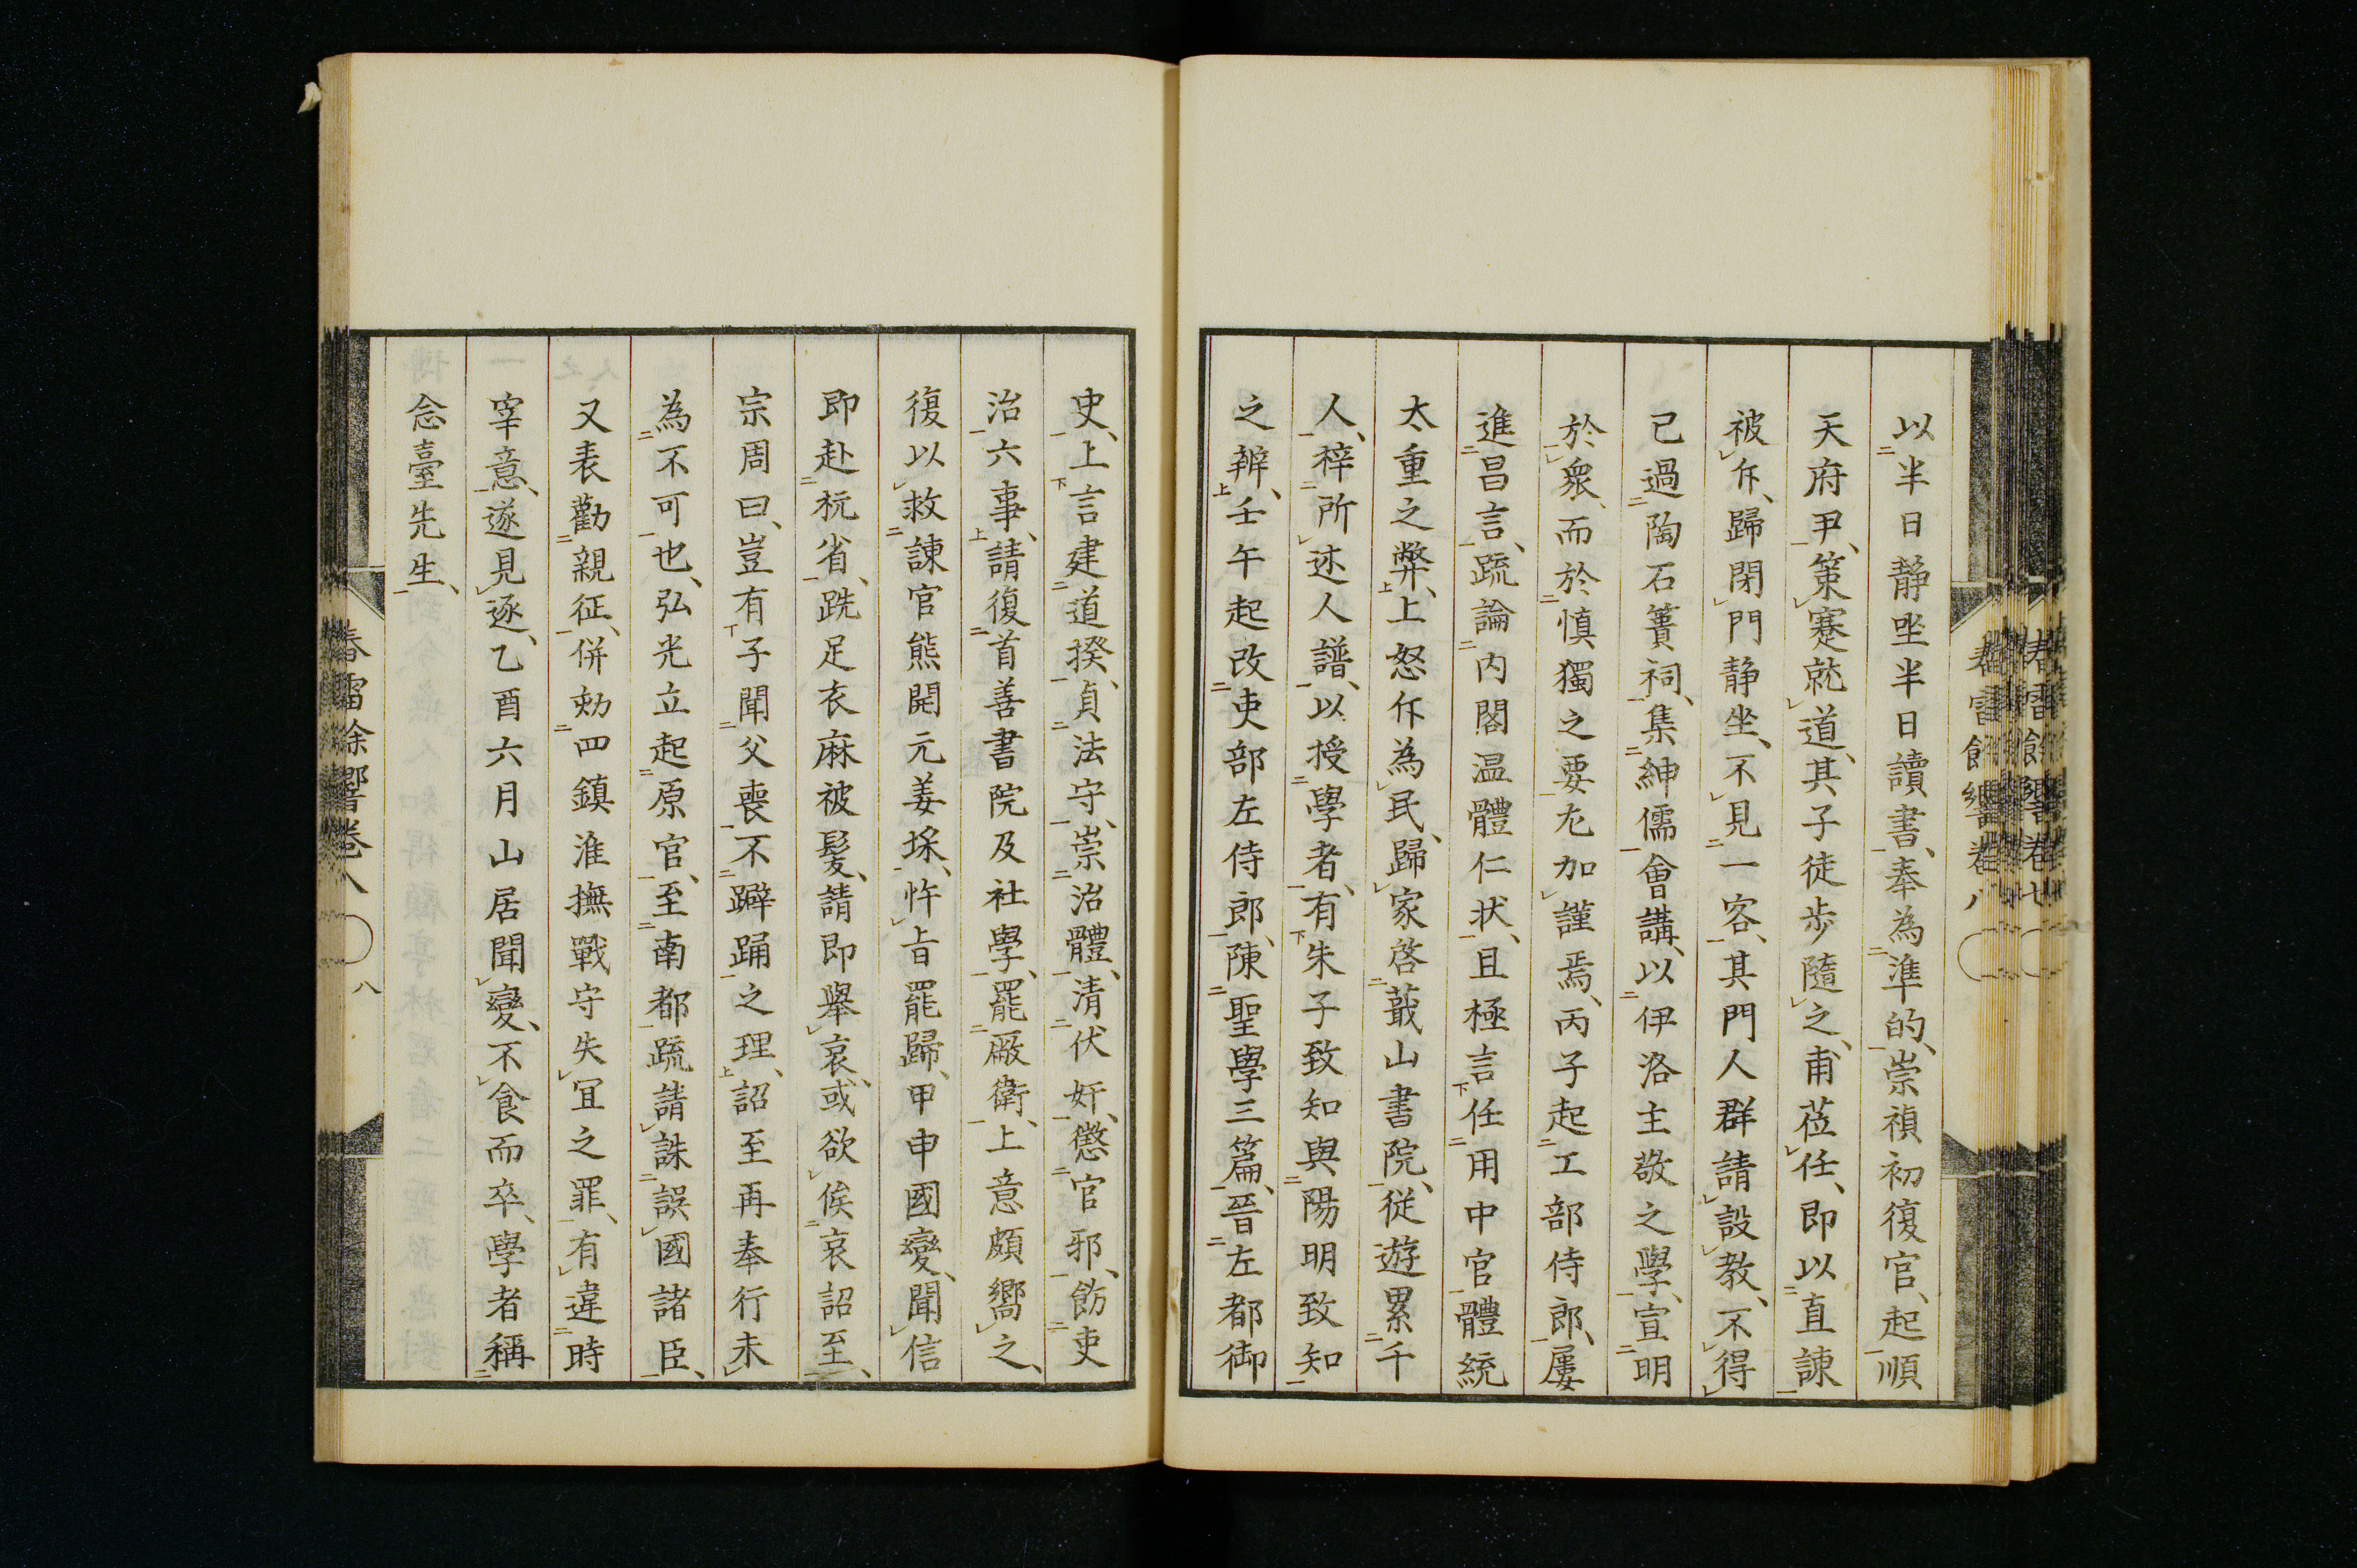 以半日静坐半日讀書、奉為準的、崇禎初復官、起順
天府尹、策蹇就道、其子徒步隨之、甫莅任、即以直諫
被斥、歸閉門静坐、不見一客、其門人群請設教、不得
已過陶石簣祠、集紳儒會講、以伊洛主敬之學、宣明
於衆、而於慎獨之要尤加謹焉、丙子起工部侍郎、屢
進昌言、疏論内閣温體仁状、且極言任用中官體統
太重之弊、上怒斥為民、歸家啓蕺山書院、從遊累千
人、梓所述人譜、以授學者、有朱子致知與陽明致知
之辨、壬午起改吏部左侍郎、陳聖學三篇、晉左都御
史、上言建道揆、貞法守、崇治體、清伏奸、懲官邪、飭吏
治六事、請復首善書院及社學、罷廠衛、上意頗嚮之、
復以救諫官熊開元姜埰、忤旨罷歸、甲申國變、聞信
即赴杭省、跣足衣麻被髪、請即舉哀、或欲俟哀詔至、
宗周曰、豈有子聞父喪不躃踊之理、詔至再奉行未
為不可也、弘光立起原官、至南都疏請誅誤國諸臣、
又表勸親征、併劾四鎮淮撫戰守失冝之罪、有違時
宰意、遂見逐、乙酉六月山居聞變、不食而卒、學者稱
念臺先生、
春雷餘響卷八
八